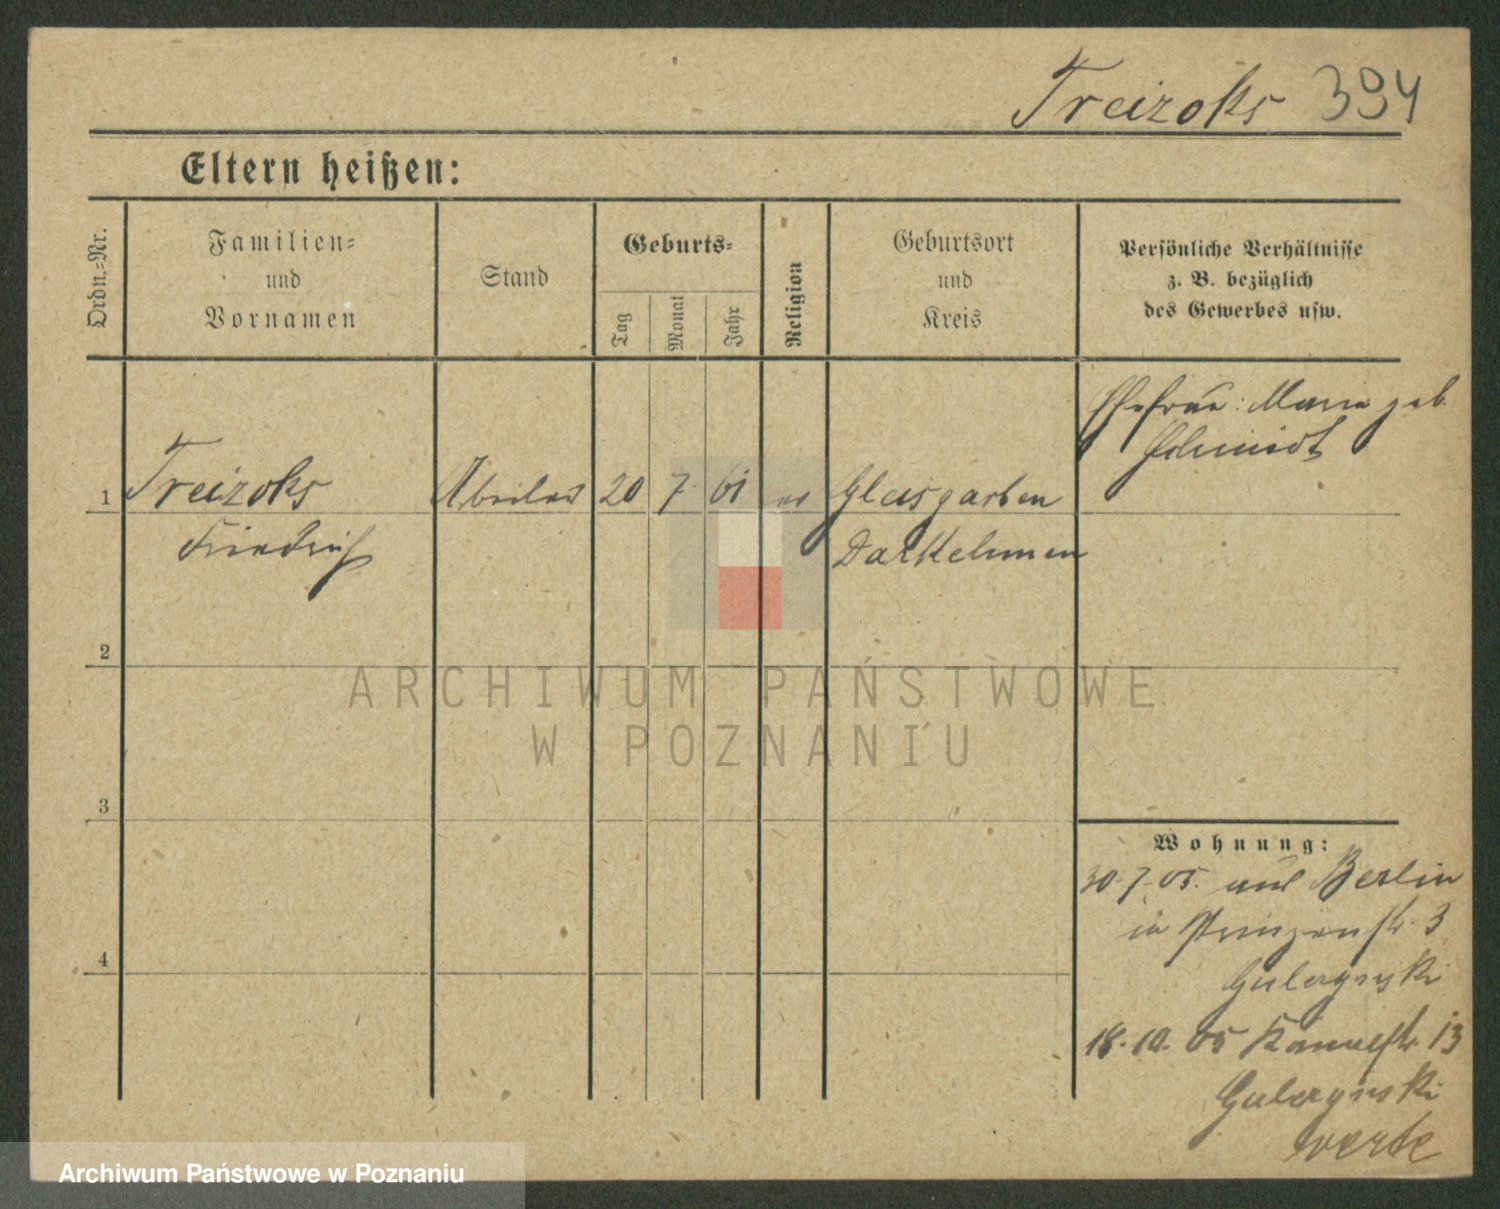 Treizoks 394
Eltern heißen:
Ordn.=Nr.
Familien=
und
Vornamen
Stand
Geburts=
Tag
Monat
Jahr
Religion
Geburtsort
und
Kreis
Persönliche Verhältnisse
z. B. bezüglich
des Gewerbes usw.
Ehefrau: Marie geb.
Schmidt
1 Treizoks 20 7. 61 ev
Friedrich Darkehmen
2
3
4
Wohnung:
30.7.05. aus Berlin
in Prinzenstr. 3
18.10.05 Kanalstr. 13
ARCHIWUM PAŃSTWOWE
W POZNANIU
Archiwum Państwowe w Poznaniu